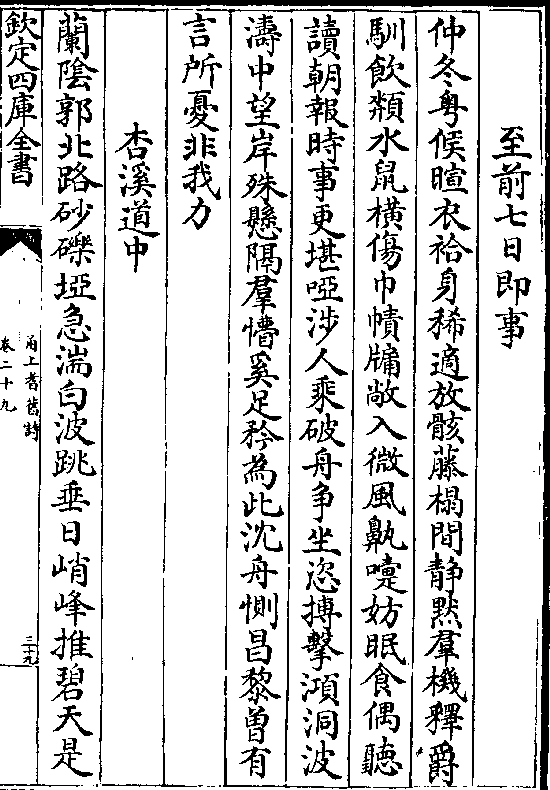 至前七日即事
仲冬粤候暄衣袷身稀適放骸藤榻間静黙羣機釋爵
馴飲纇水鼠横傷巾幘牖敞入微風鼽嚏妨眠食偶聽
讀朝報時事更堪啞涉人乘破舟争坐恣搏擊澒洞波
濤中望岸殊懸隔羣懵奚足矜為此沈舟惻昌黎曽有
言所憂非我力
杏溪道中
蘭陰郭北路砂礫埡急湍白波跳垂日峭峰推碧天是
欽定四庫全書
甬上耆舊詩
卷二十九
三十九